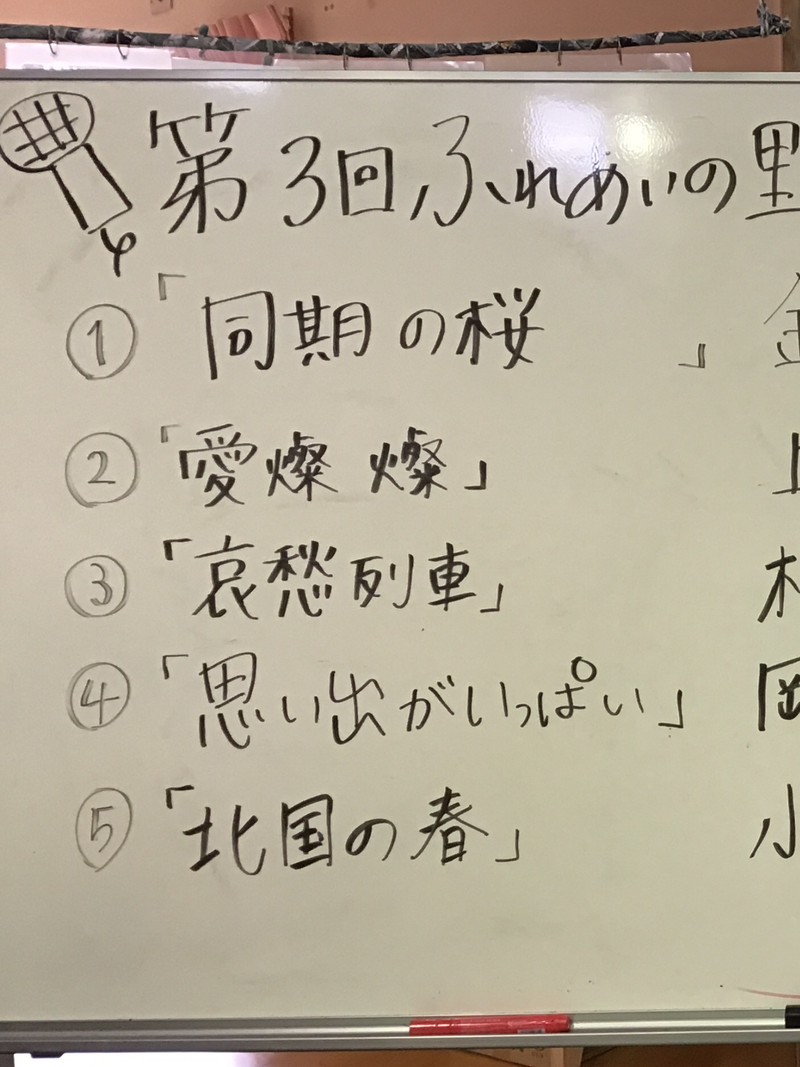 第3回ふれあいの里
①「同期の桜」
②「愛燦燦」
③「哀愁列車」
④「思い出がいっぱい」
⑤「北国の春」 小